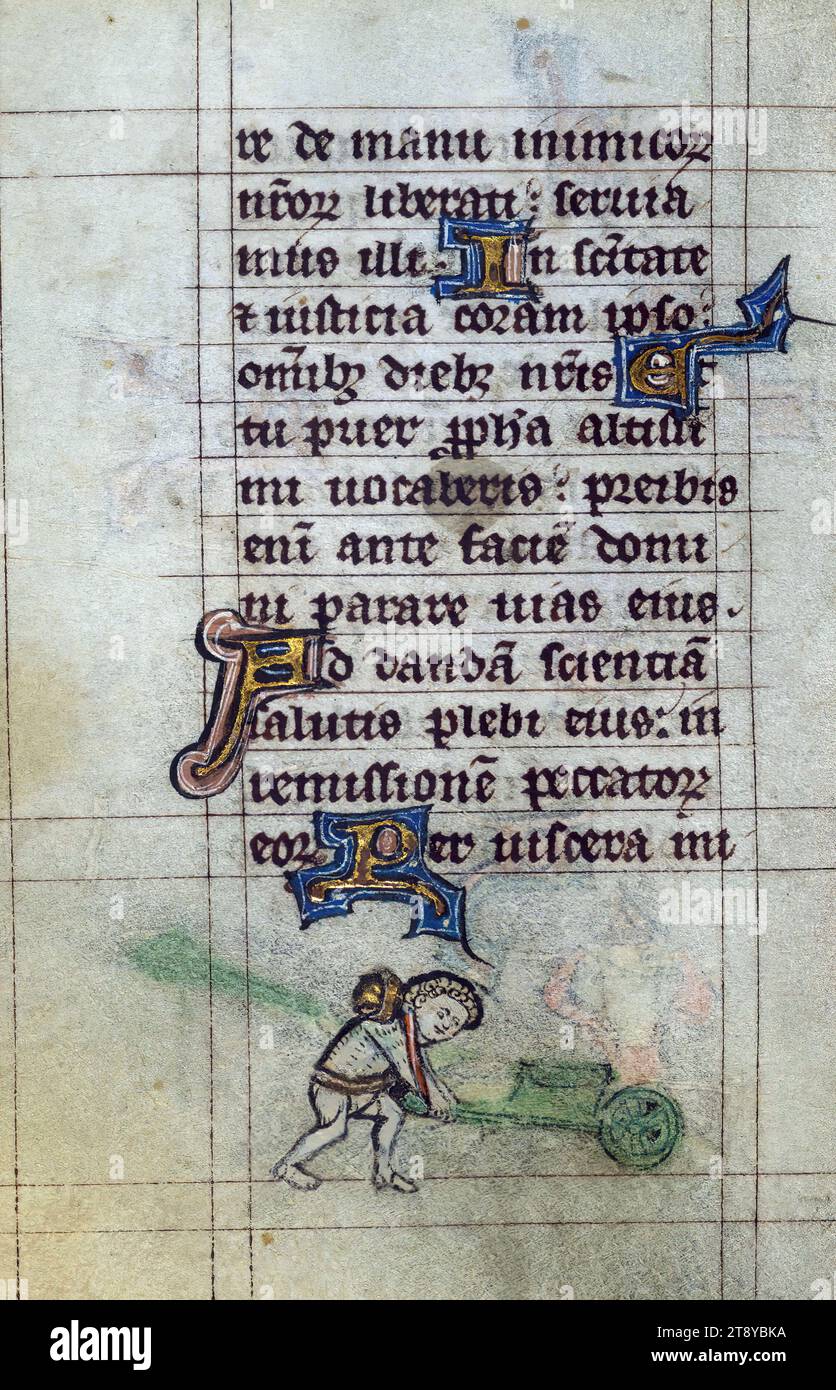 re de manu inimicoꝝ
nr̄oꝝ liberati : seruia
mus illi . In sc̄itate
⁊ iusticia coram ipso :
om̄ibꝫ diebꝫ nr̄is Et
tu puer ꝓph'a altissi
mi uocaberis : preibis
eni̅ ante facie̅ domi
ni parare uias eius .
Ad danda̅ sciencia̅
salutis plebi eius : in
remissione̅ peccatoꝝ
eoꝝ Per uiscera mi
alamy
alamy
a
a
a
alamy
Image ID: 2T8YBKA
www.alamy.com